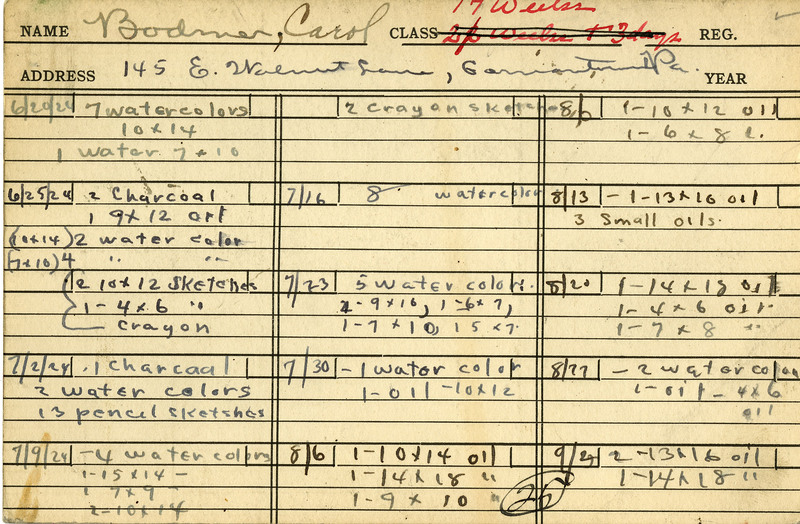 NAME Bodmer, Carol CLASS 17 Weeks REG.
2/6 Weeks + 3 days
ADDRESS 145 E. Walnut Lane, Germantown Pa. YEAR
6/20/24 7 watercolors
10 x 14
1 water 7 x 10
6/25/24 2 Charcoal
1 9 x 12 art
(10x14) 2 water color
(7x10) 4 " "
2 10 x 12 Sketches
1 - 4 x 6 "
- crayon
7/2/24 1 Charcoal
2 water colors
13 pencil sketches
7/9/24 - 4 water colors
1 - 15 x 14 -
1 7 x 9 -
2 - 10 x 14
2 crayon sketches
7/16 8 watercolor
7/23 5 water colors.
1 - 9 x 10, 1 - 6 x 7,
1 - 7 x 10, 1 5 x 7.
7/30 - 1 water color
1 - oil - 10 x 12
8/6 1 - 10 x 14 oil
1 - 14 x 18 "
1 - 9 x 10 "
25
8/6 1 - 10 x 12 oil
1 - 6 x 8 "
8/13 - 1 - 13 x 16 oil
3 Small oils.
8/20 1 - 14 x 18 oil
1 - 4 x 6 oil
1 - 7 x 8 "
8/27 - 2 watercolor
1 - oil - 4 x 6
oil
9/24 2 - 13 x 16 oil
1 - 14 x 18 "